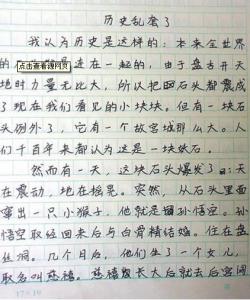 历史乱套了
我认为历史是这样的：本来全世界
的 是连在一起的，由于盘古开天
点击查看源网页
地时力量无比大，所以把石头都震成
了现在我们看见的小块块，但有一块石
头例外了，它有一个故宫城那么大。人
们千百年来都认为这是一块破石。
然而有一天，这块石头爆发了：天
在震动，地在摇晃。突然，从石头里面
窜出一只小猴子，他就是孙悟空。孙
悟空取经回来后与白骨精结婚。住在盘
丝洞。几个月后，他们生了一个女儿，
取名叫慈禧。慈禧长大后就去后宫闯